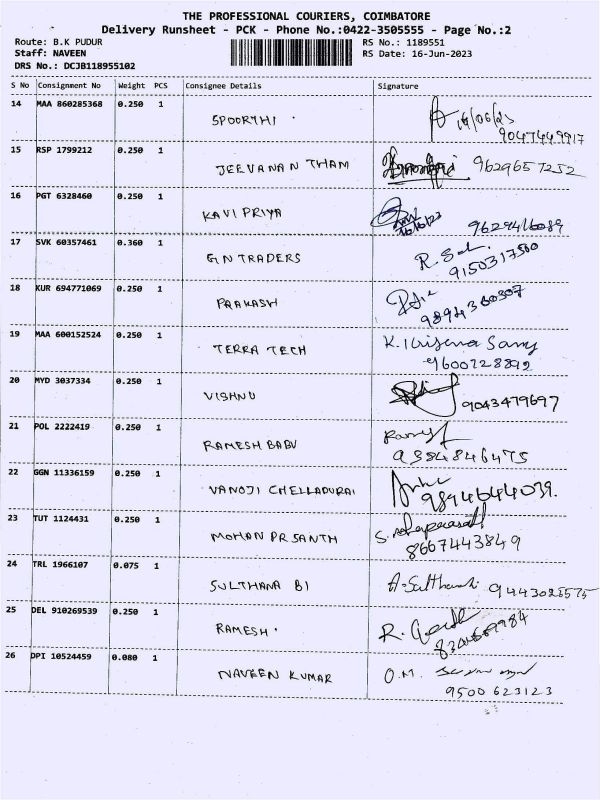 THE PROFESSIONAL COURIERS, COIMBATORE
Delivery Runsheet - PCK - Phone No.:0422-3505555 - Page No.:2
Route: B.K PUDUR RS No.: 1189551
Staff: NAVEEN RS Date: 16-Jun-2023
DRS No.: DCJB118955102
S No Consignment No Weight PCS Consignee Details Signature
14 MAA 860285368 0.250 1 SPOORTHI 16/06/23
9047449917
15 RSP 1799212 0.250 1 JEEVANAN THAM 9629657252
16 PGT 6328460 0.250 1 KAVI PRIYA 9629416089
17 SVK 60357461 0.360 1 GN TRADERS
9150317500
18 KUR 694771069 0.250 1 PRAKASH
9894360307
19 MAA 600152524 0.250 1 TERRA TECH K. Krisena Samy
9600728892
20 MYD 3037334 0.250 1 VISHNU 9043479697
21 POL 2222419 0.250 1 RAMESH BABU
9384846475
22 GGN 11336159 0.250 1 VANOJI CHELLADURAI 9894644039.
23 TUT 1124431 0.250 1 MOHAN PRSANTH
8667443849
24 TRL 1966107 0.075 1 SULTHANA BI 9443028575
25 DEL 910269539 0.250 1 RAMESH.
26 DPI 10524459 0.080 1 NAVEEN KUMAR O.M.
9500 623123